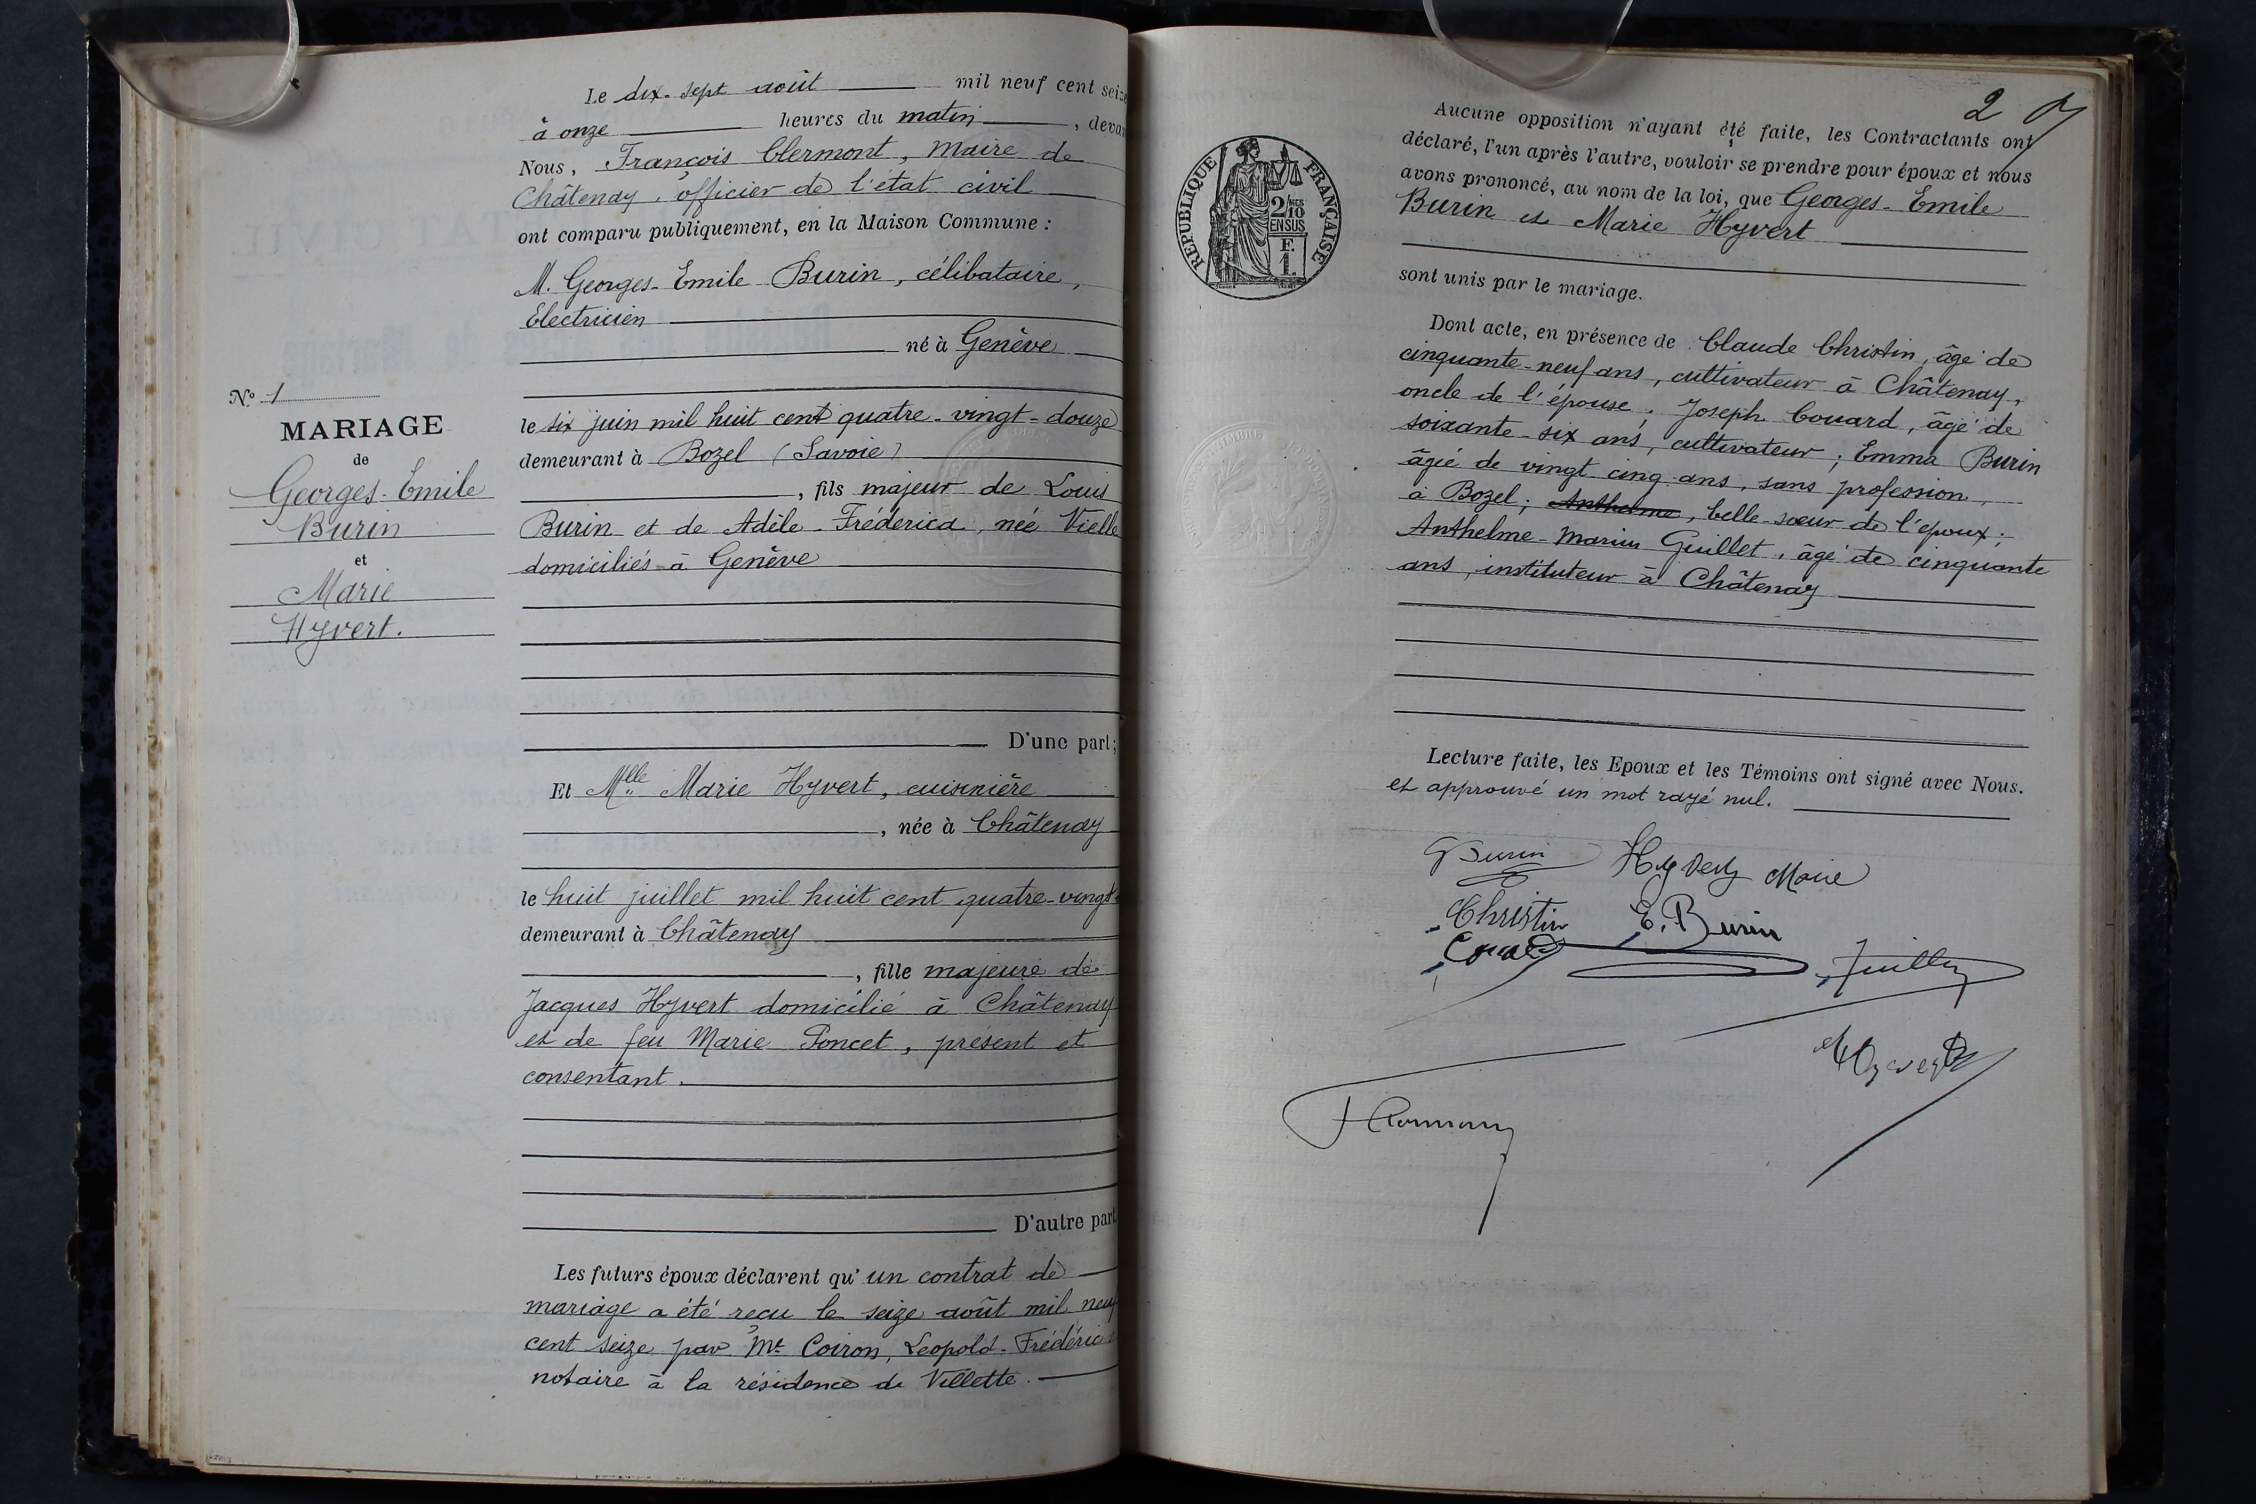 Le dix-sept août mil neuf cent seize
à onze heures du matin, deva
Nous, François Clermont, Maire de
Châtenay, officier de l'état civil
ont comparu publiquement, en la Maison Commune :
M. Georges-Emile Burin, célibataire,
Electricien
né à Genève
le six juin mil huit cent quatre-vingt-douze
demeurant à Bozel (Savoie)
, fils majeur de Louis
Burin et de Adèle-Fréderica, née Vielle
domiciliés à Genève
D'une part ;
Et Melle Marie Hyvert, cuisinière
, née à Châtenay
le huit juillet mil huit cent quatre-vingt-
demeurant à Châtenay
, fille majeure de
Jacques Hyvert domicilié à Châtenay
et de feu Marie Poncet, présent et
consentant.
D'autre part.
Les futurs époux déclarent qu'un contrat de
mariage a été reçu le seize août mil neuf
cent seize par Me Coiron, Leopold-Frédéric
notaire à la résidence de Villette.
No 1
MARIAGE
de
Georges-Emile
Burin
et
Marie
Hyvert.
2
REPUBLIQUE FRANÇAISE
2/10
EN SUS
F.
1.
Aucune opposition n'ayant été faite, les Contractants ont
déclaré, l'un après l'autre, vouloir se prendre pour époux et nous
avons prononcé, au nom de la loi, que Georges-Emile
Burin et Marie Hyvert
sont unis par le mariage.
Dont acte, en présence de Claude Christin, âgé de
cinquante-neuf ans, cultivateur à Châtenay,
oncle de l'épouse, Joseph Couard, âgé de
soixante-six ans, cultivateur ; Emma Burin
âgée de vingt cinq ans, sans profession,
à Bozel ; Anthelme, belle-sœur de l'époux ;
Anthelme-Marius Guillet, âgé de cinquante
ans, instituteur à Châtenay
Lecture faite, les Epoux et les Témoins ont signé avec Nous.
et approuvé un mot rayé nul.
G Burin Hyvert Marie
Christin E. Burin
Couard